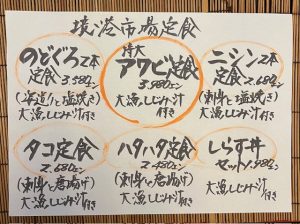 境港市場定食
のどぐろ2本
定食3,580エン
(海道と塩焼き)
大漁しじみ汁
付き
特大
アワビ定食
3,980エン
大漁しじみ汁
付き
ニシン2本
定食2,680エン
(刺身と塩焼き)
大漁しじみ汁付き
タコ定食
2,680エン
(刺身と唐揚げ)
大漁しじみ汁付き
ハタハタ定食
2,480エン
(刺身と唐揚げ)
大漁しじみ汁付き
しらす丼
セット1,980エン
大漁しじみ汁
付き